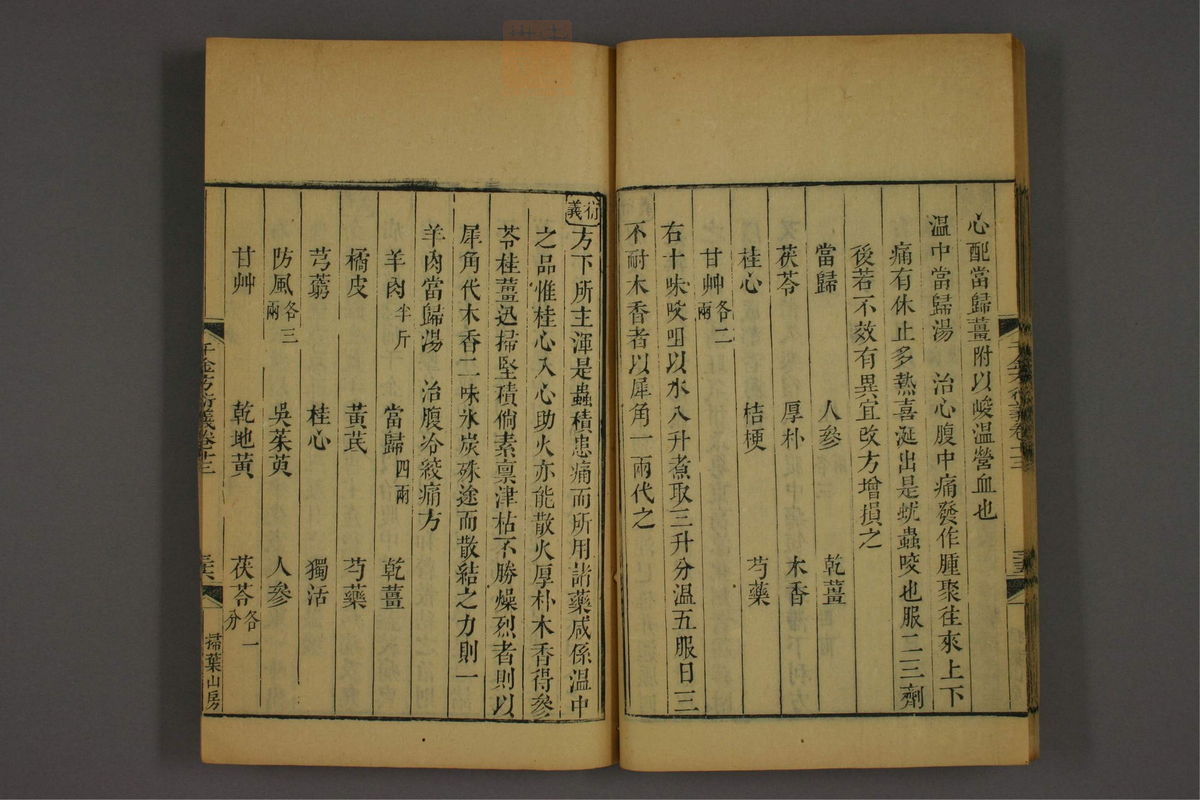 心配當歸薑附以峻溫營血也
溫中當歸湯 治心腹中痛發作腫聚往來上下
痛有休止多熱喜涎出是蚘蟲咬也服二三劑
後若不效有異宜改方增損之
當歸 人參 乾薑
茯苓 厚朴 木香
桂心 桔梗 芍藥
甘艸各二兩
右十味㕮咀以水八升煮取三升分溫五服日三
不耐木香者以犀角一兩代之
衍義
方下所主渾是蟲積患痛而所用諸藥咸係溫中
之品惟桂心入心助火亦能散火厚朴木香得參
苓桂薑迅掃堅積倘素禀津枯不勝燥烈者則以
犀角代木香二味氷炭殊途而散結之力則一
羊肉當歸湯 治腹冷絞痛方
羊肉半斤 當歸四兩 乾薑
橘皮 黃芪 芍藥
芎藭 桂心 獨活
防風各三兩 吳茱萸 人參
甘艸 乾地黃 茯苓各一分
千金方衍義卷十三
三六
掃葉山房